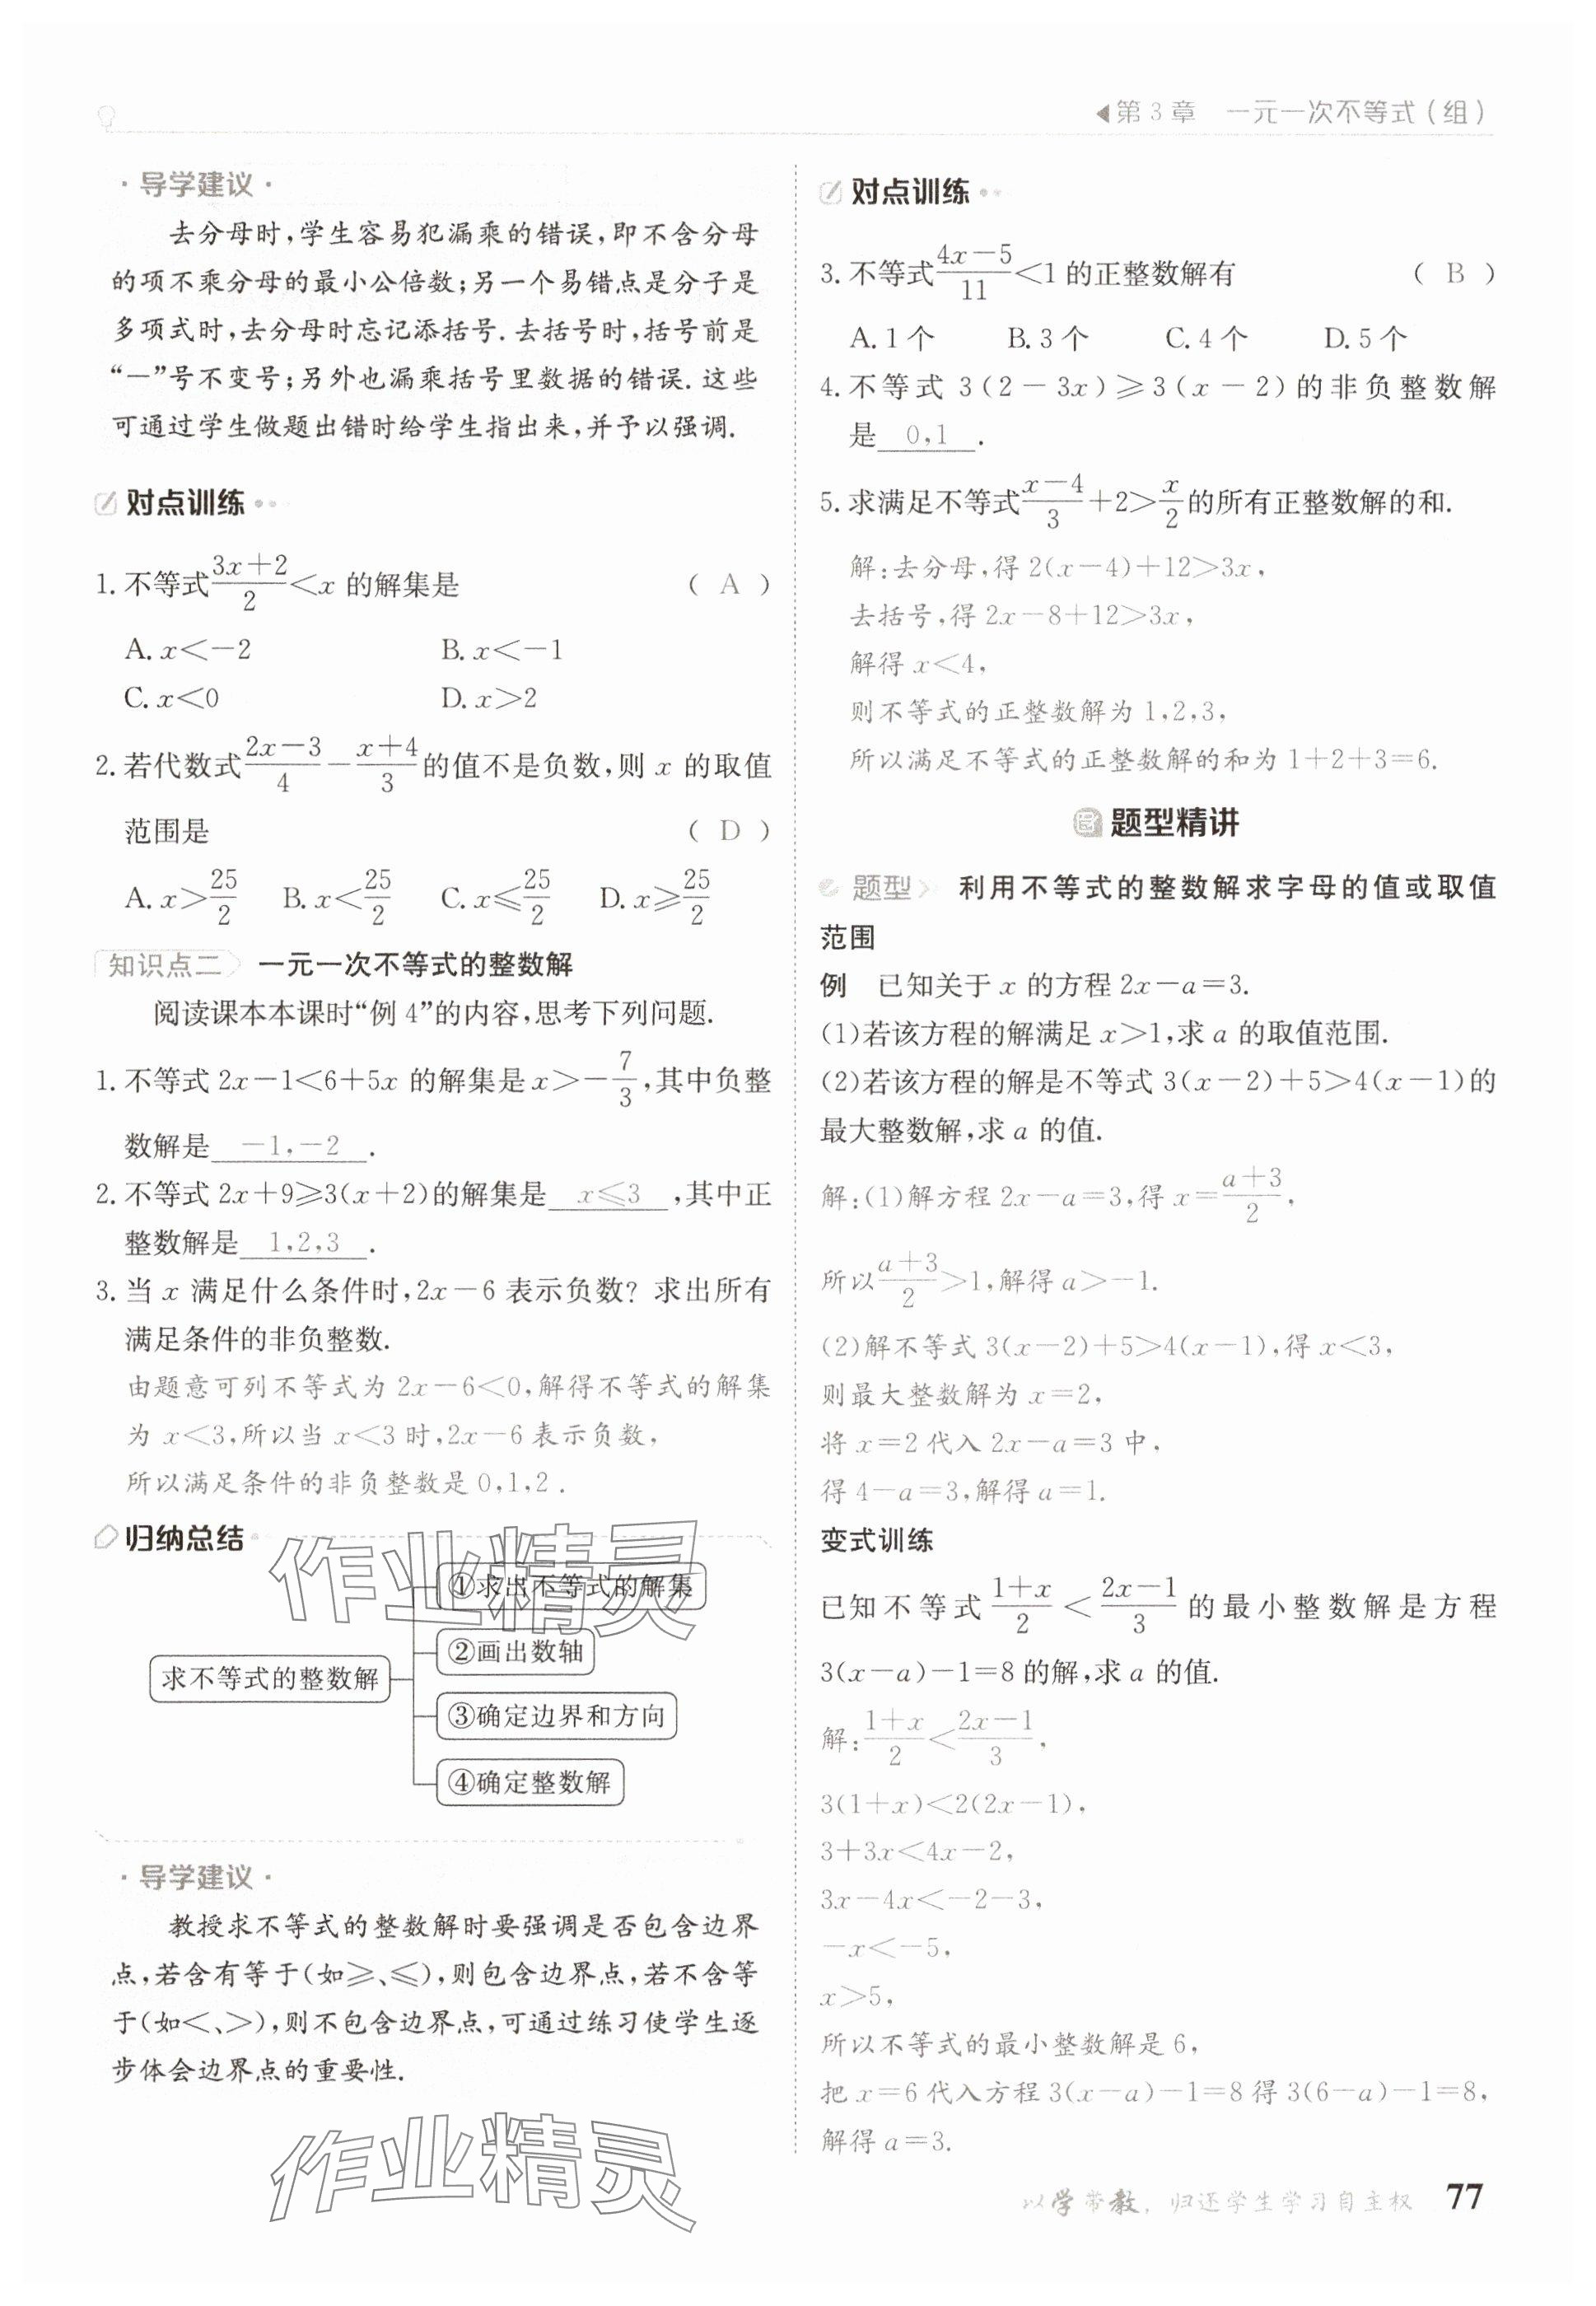 第3章 一元一次不等式(组)
·导学建议·
去分母时,学生容易犯漏乘的错误,即不含分母
的项不乘分母的最小公倍数;另一个易错点是分子是
多项式时,去分母时忘记添括号.去括号时,括号前是
“－”号不变号;另外也漏乘括号里数据的错误.这些
可通过学生做题出错时给学生指出来,并予以强调.
对点训练
1.不等式(3x+2)/2<x 的解集是 ( A )
A.x<-2 B.x<-1
C.x<0 D.x>2
2.若代数式(2x-3)/4-(x+4)/3的值不是负数,则 x 的取值
范围是 ( D )
A.x>25/2 B.x<25/2 C.x≤25/2 D.x≥25/2
知识点二 一元一次不等式的整数解
阅读课本本课时“例 4”的内容,思考下列问题.
1.不等式 2x-1<6+5x 的解集是 x>-7/3,其中负整
数解是 -1,-2 .
2.不等式 2x+9≥3(x+2)的解集是 x≤3 ,其中正
整数解是 1,2,3 .
3.当 x 满足什么条件时,2x-6 表示负数? 求出所有
满足条件的非负整数.
由题意可列不等式为 2x-6<0,解得不等式的解集
为 x<3,所以当 x<3 时,2x-6 表示负数,
所以满足条件的非负整数是 0,1,2 .
归纳总结
求不等式的整数解
①求出不等式的解集
②画出数轴
③确定边界和方向
④确定整数解
作业精灵
·导学建议·
教授求不等式的整数解时要强调是否包含边界
点,若含有等于(如≥、≤),则包含边界点,若不含等
于(如<、>),则不包含边界点,可通过练习使学生逐
步体会边界点的重要性.
作业精灵
对点训练
3.不等式(4x-5)/11<1 的正整数解有 ( B )
A.1个 B.3个 C.4个 D.5个
4.不等式 3(2-3x)≥3(x-2)的非负整数解
是 0,1 .
5.求满足不等式(x-4)/3+2>x/2的所有正整数解的和.
解:去分母,得 2(x-4)+12>3x,
去括号,得 2x-8+12>3x,
解得 x<4,
则不等式的正整数解为 1,2,3,
所以满足不等式的正整数解的和为 1+2+3=6.
题型精讲
题型 利用不等式的整数解求字母的值或取值
范围
例 已知关于 x 的方程 2x-a=3.
(1)若该方程的解满足 x>1,求 a 的取值范围.
(2)若该方程的解是不等式 3(x-2)+5>4(x-1)的
最大整数解,求 a 的值.
解:(1)解方程 2x-a=3,得 x=(a+3)/2,
所以(a+3)/2>1,解得 a>-1.
(2)解不等式 3(x-2)+5>4(x-1),得 x<3,
则最大整数解为 x=2,
将 x=2 代入 2x-a=3 中,
得 4-a=3,解得 a=1.
变式训练
已知不等式 (1+x)/2 < (2x-1)/3 的最小整数解是方程
3(x-a)-1=8 的解,求 a 的值.
解:(1+x)/2<(2x-1)/3,
3(1+x)<2(2x-1),
3+3x<4x-2,
3x-4x<-2-3,
-x<-5,
x>5,
所以不等式的最小整数解是 6,
把 x=6 代入方程 3(x-a)-1=8 得 3(6-a)-1=8,
解得 a=3.
以学带教,归还学生学习自主权 77